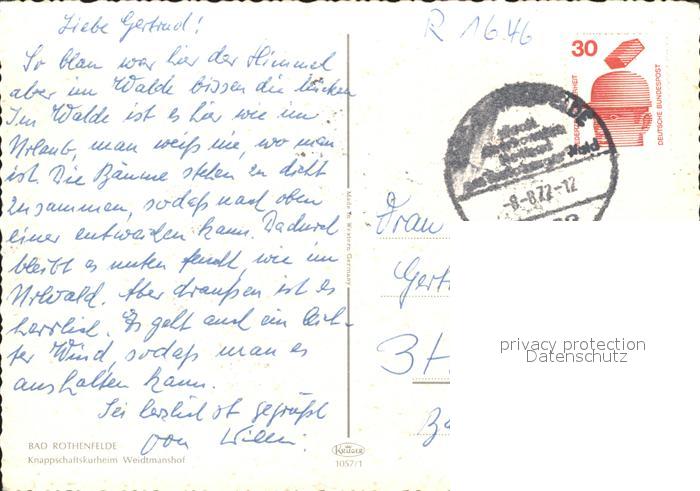 Liebe Gertrud!
So blau war hier der Himmel
aber im Walde bissen die Mücken
Im Walde ist es hier wie im
Urlaub, man weiß nie, wo man
ist. Die Bäume stehen zu dicht
zusammen, sodaß nach oben
einer entweichen kann. Dadurch
bleibt es unten feucht, wie im
Urwald. Aber draußen ist es
herrlich. Es geht auch ein leich-
ter Wind, sodaß man es
aushalten kann.
Sei herzlich gegrüßt
von Willi.
BAD ROTHENFELDE
Knappschaftskurheim Weidtmanshof
Made in Western Germany
KRÜGER
1057/1
R 1646
30
DEUTSCHE BUNDESPOST
-8-8.72-12
Frau
Gert
3
privacy protection
Datenschutz